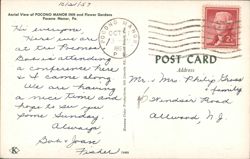 10/21/57
Aerial View of POCONO MANOR INN and Flower Gardens
Pocono Manor, Pa.
Hi everyone
Here we are
at the Pocono's
Bob is attending
a conference here
& I came along
We are having
a nice time and
hope to see you
some Sunday
Always
Bob + Joan
Fisher
POCONO MANOR
OCT
PA.
2¢
POST CARD
Address
Mr. + Mrs Philip Gross
+ family
Windsor Road
Allwood, N.J.
K